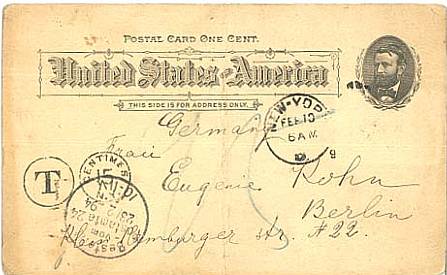 POSTAL CARD ONE CENT.
United States of America
THIS SIDE IS FOR ADDRESS ONLY.
Germany
NEW-YOR
FEB 10
6 AM
9
Frau
CENTIMES
T
Eugenie Kohn
Berlin
Hamburger str. #22.